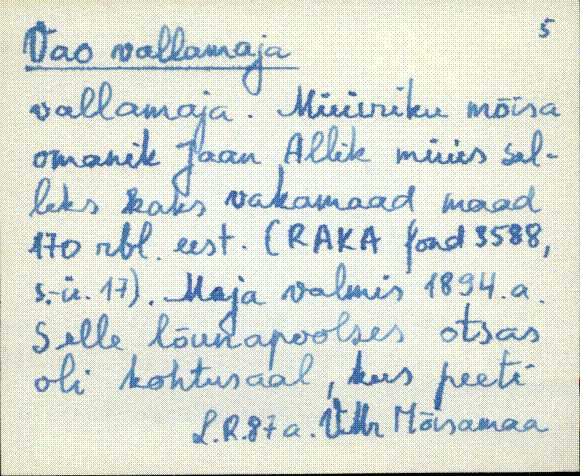 5
Vao vallamaja
vallamaja. Müüriku mõisa
omanik Jaan Allik müüs sel-
leks kaks vakamaad maad
170 rbl. eest. (RAKA fond 3588,
s.-ü. 17). Maja valmis 1894. a.
Selle lõunapoolses otsas
oli kohtusaal, kus peeti
L.R.87 a. Mõisamaa